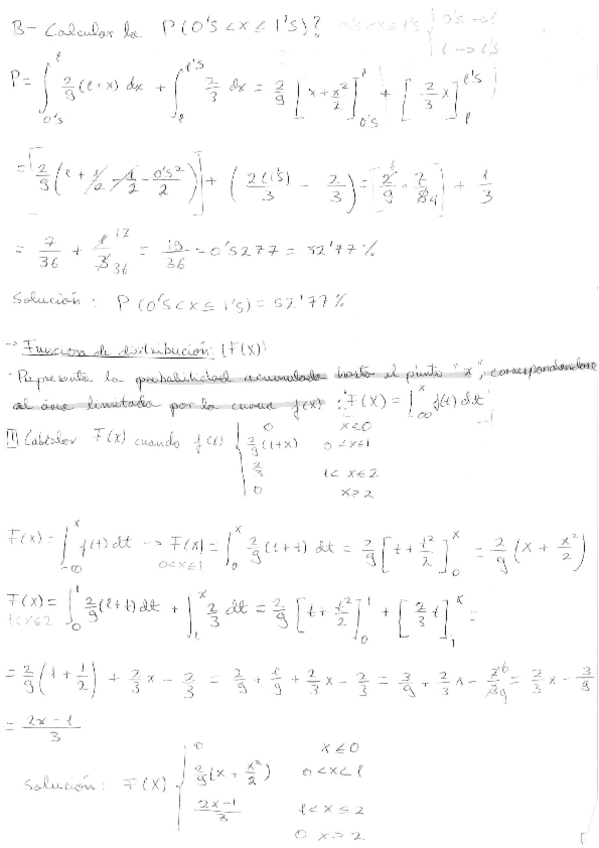 B- Calcular la P(0's < x ≤ 1's)?
P = ∫_{0's}^{1} 2/9 (1+x) dx + ∫_{1}^{1's} 2/3 dx = 2/9 [x + x²/2]_{0's}^{1} + [2/3 x]_{1}^{1's}
= [2/9 (1 + 1/2 - 1/2 - 0's²/2)] + (2(1's)/3 - 2/3) = [2/9 · 7/8 4] + 1/3
= 7/36 + 1/3 12/36 = 19/36 = 0'5277 = 52'77%
Solución: P(0's < x ≤ 1's) = 52'77%
→ Función de distribución: (F(X))
- Representa la probabilidad acumulada hasta el punto "x", correspondiendose
al área limitada por la curva f(x) : F(X) = ∫_{-∞}^{x} f(t) dt
1) Calcular F(x) cuando f(x) { 0 x≤0
2/9 (1+x) 0<x≤1
2/3 1<x≤2
0 x>2
F(x) = ∫_{-∞}^{x} f(t) dt → F(x) = ∫_{0}^{x} 2/9 (1+t) dt = 2/9 [t + t²/2]_{0}^{x} = 2/9 (x + x²/2)
0<x≤1
F(x) = ∫_{0}^{1} 2/9 (1+t) dt + ∫_{1}^{x} 2/3 dt = 2/9 [t + t²/2]_{0}^{1} + [2/3 t]_{1}^{x} =
1<x≤2
= 2/9 (1 + 1/2) + 2/3 x - 2/3 = 2/9 + 1/9 + 2/3 x - 2/3 = 3/9 + 2/3 x - 2/3 6/9 = 2/3 x - 3/9
= 2x-1/3
Solución: F(X) { 0 x≤0
2/9 (x + x²/2) 0<x<1
2x-1/3 1<x≤2
0 x>2